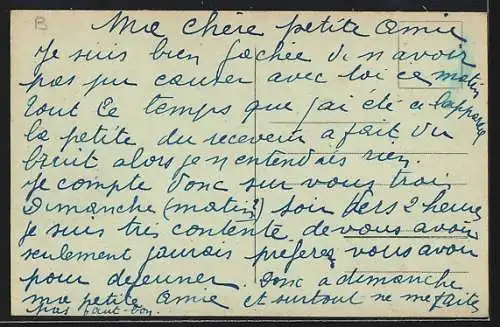 B
Ma chère petite Amie
Je suis bien fachée de n avoir
pas pu causer avec toi ce matin
tout ce temps que j'ai été a l'appareil
la petite du receveur a fait du
bruit alors je n entendais rien.
Je compte donc sur vous trois
Dimanche (matin?) soir vers 2 heures
je suis très contente de vous avoir
seulement jaurais préferer vous avoir
pour dejeuner. Donc a dimanche
ma petite Amie et surtout ne me faites
pas faut-bon.